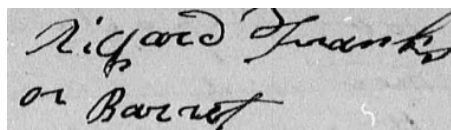 Richard Franks
or Barrot